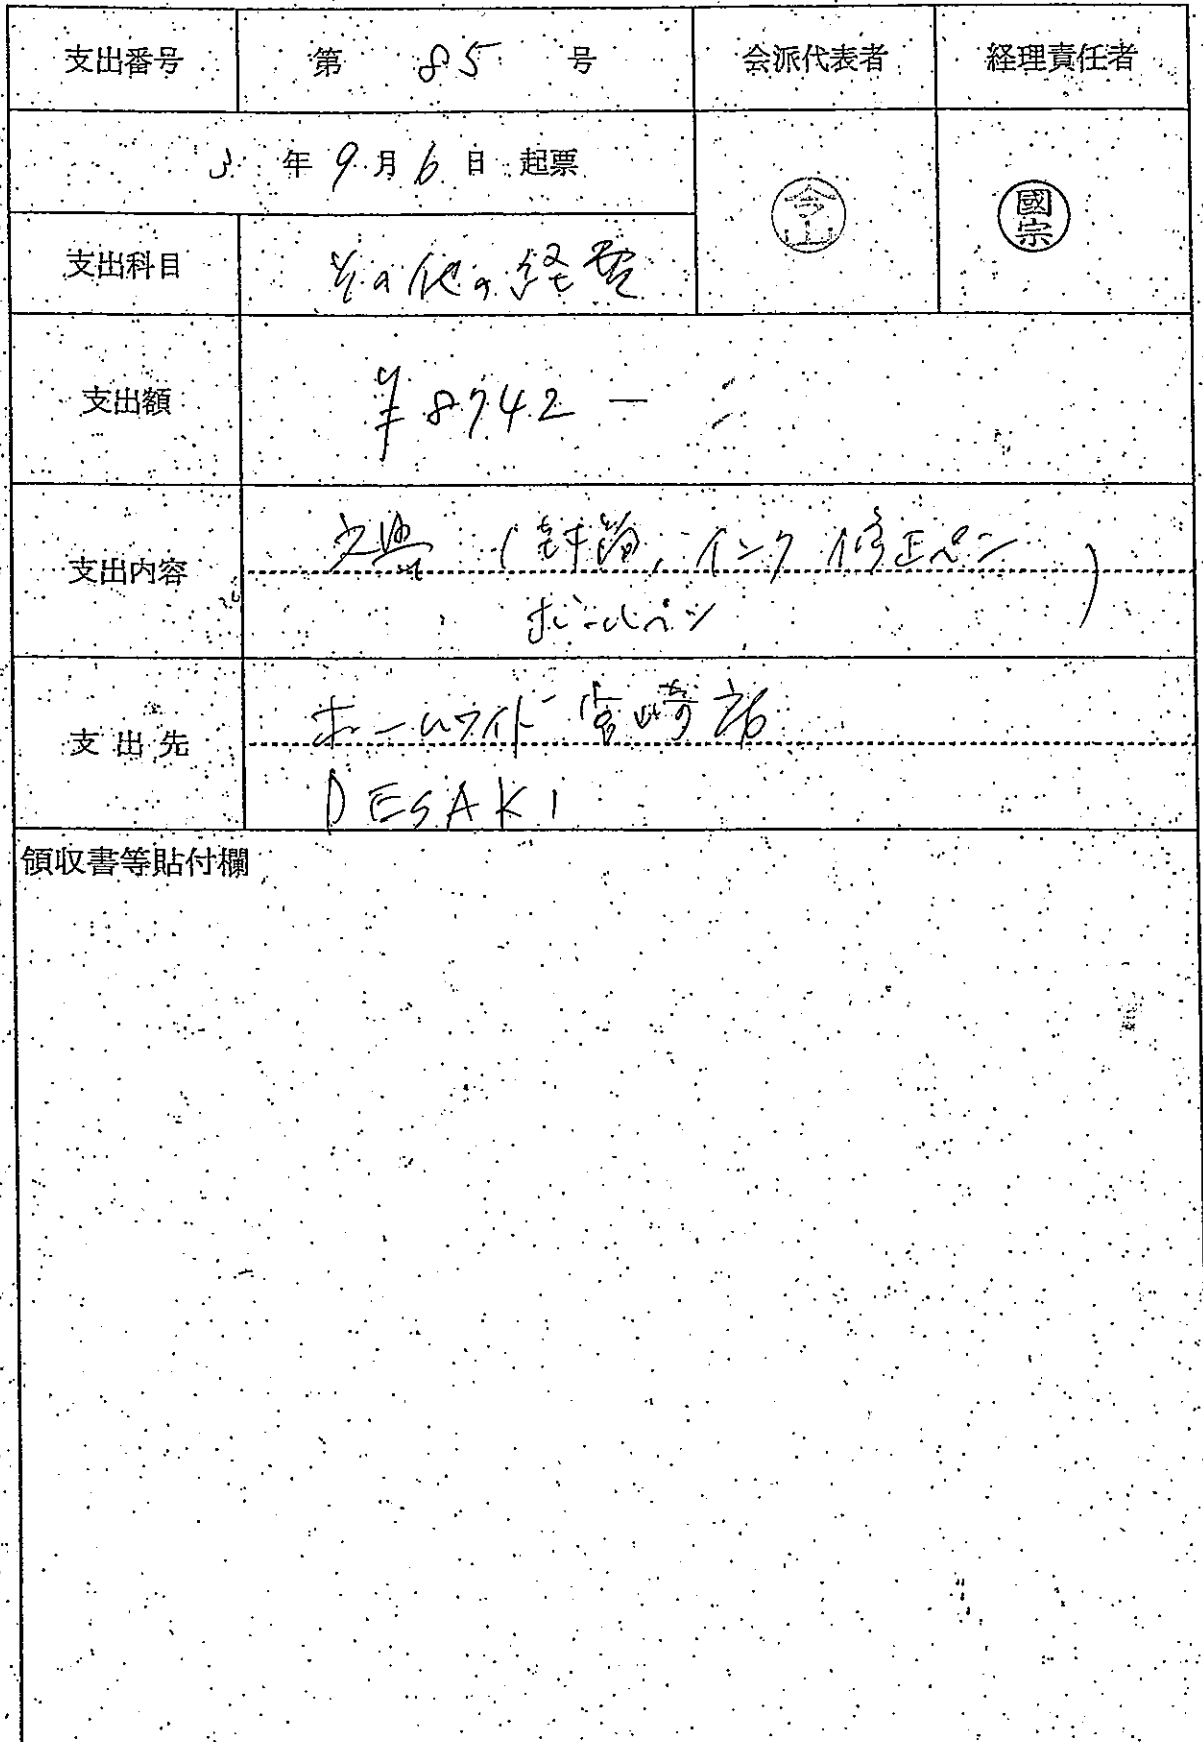 支出番号 第 85 号 会派代表者 経理責任者
3 年 9 月 6 日 起票
今山 國宗
支出科目 その他の経費
支出額 ¥8742 −
支出内容 文具 (封筒, インク 修正ペン
ボールペン )
支出先 ホームワイド宮崎
DESAKI
領収書等貼付欄